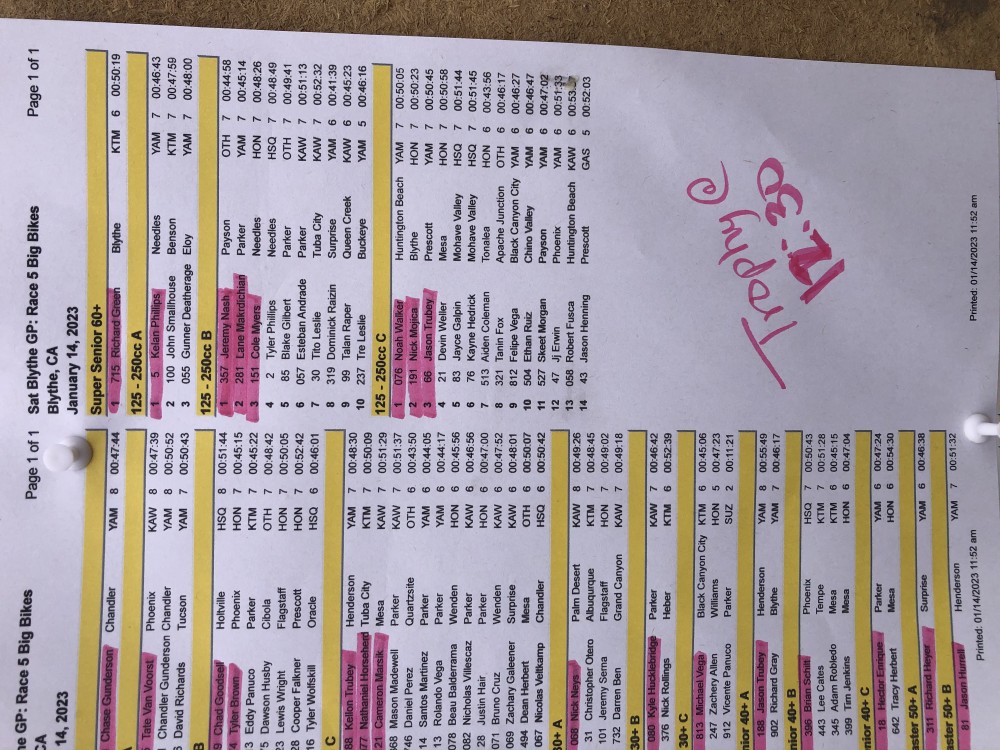 ne GP: Race 5 Big Bikes
CA
14, 2023
Page 1 of 1
Chase Gunderson Chandler YAM 8 00:47:44
A
Tate Van Voorst Phoenix KAW 8 00:47:39
Chandler Gunderson Chandler YAM 8 00:50:52
David Richards Tucson YAM 7 00:50:43
B
9 Chad Goodsell Holtville HSQ 8 00:51:44
4 Tyler Brown Phoenix HON 7 00:45:15
3 Eddy Panuco Parker KTM 7 00:45:22
5 Dawson Husby Cibola OTH 7 00:48:42
23 Lewis Wright Flagstaff HON 7 00:50:05
28 Cooper Falkner Prescott HON 7 00:52:42
16 Tyler Wolfskill Oracle HSQ 6 00:46:01
C
88 Kellon Trubey Henderson YAM 7 00:48:30
77 Nathaniel Househerd Tuba City KTM 7 00:50:09
21 Cameron Marsik Mesa KAW 7 00:51:29
68 Mason Madewell Parker KAW 7 00:51:37
746 Daniel Perez Quartzsite OTH 6 00:43:50
14 Santos Martinez Parker YAM 6 00:44:05
13 Rolando Vega Parker YAM 6 00:44:17
078 Beau Balderrama Wenden HON 6 00:45:56
082 Nicholas Villescaz Parker KAW 6 00:46:56
28 Justin Hair Parker HON 6 00:47:00
071 Bruno Cruz Wenden KAW 6 00:47:52
069 Zachary Galeener Surprise YAM 6 00:48:01
494 Dean Herbert Mesa OTH 6 00:50:07
067 Nicolas Veltkamp Chandler HSQ 6 00:50:42
30+ A
068 Nick Neys Palm Desert KAW 8 00:49:26
31 Christopher Otero Albuquerque KTM 7 00:48:45
101 Jeremy Serna Flagstaff HON 7 00:49:02
732 Darren Ben Grand Canyon KAW 7 00:49:18
30+ B
080 Kyle Hucklebridge Parker KAW 7 00:46:42
376 Nick Rollings Heber KTM 6 00:52:39
30+ C
813 Michael Vega Black Canyon City KTM 6 00:45:06
247 Zachery Allen Williams HON 5 00:47:23
912 Vicente Panuco Parker SUZ 2 00:11:21
nior 40+ A
188 Jason Trubey Henderson YAM 8 00:55:49
902 Richard Grays Blythe YAM 7 00:46:17
nior 40+ B
396 Brian Schitt Phoenix HSQ 7 00:50:43
443 Lee Cates Tempe KTM 7 00:51:28
345 Adam Robledo Mesa KTM 6 00:45:15
399 Tim Jenkins Mesa HON 6 00:47:04
nior 40+ C
18 Hector Enrique Parker YAM 6 00:47:24
642 Tracy Herbert Mesa HON 6 00:54:30
aster 50+ A
311 Richard Heyer Surprise YAM 6 00:46:38
aster 50+ B
81 Jason Hurrell Henderson YAM 7 00:51:32
Printed: 01/14/2023 11:52 am
Sat Blythe GP: Race 5 Big Bikes
Blythe, CA
January 14, 2023
Page 1 of 1
Super Senior 60+
1 715 Richard Green Blythe KTM 6 00:50:19
125 - 250cc A
1 5 Keian Phillips Needles YAM 7 00:46:43
2 100 John Smallhouse Benson KTM 7 00:47:59
3 055 Gunner Deatherage Eloy YAM 7 00:48:00
125 - 250cc B
1 357 Jeremy Nash Payson OTH 7 00:44:58
2 281 Lane Makrdichian Parker YAM 7 00:45:14
3 151 Cole Myers Needles HON 7 00:48:26
4 2 Tyler Phillips Needles HSQ 7 00:48:49
5 85 Blake Gilbert Parker OTH 7 00:49:41
6 057 Esteban Andrade Parker KAW 7 00:51:13
7 30 Tito Leslie Tuba City KAW 7 00:52:32
8 319 Dominick Raizin Surprise YAM 6 00:41:39
9 99 Talan Raper Queen Creek KAW 6 00:45:23
10 237 Tre Leslie Buckeye YAM 5 00:46:16
125 - 250cc C
1 076 Noah Walker Huntington Beach YAM 7 00:50:05
2 191 Nick Mojica Blythe HON 7 00:50:23
3 66 Jason Trubey Prescott YAM 7 00:50:45
4 21 Devin Weller Mesa HON 7 00:50:58
5 83 Jayce Galpin Mohave Valley HSQ 7 00:51:44
6 76 Kayne Hedrick Mohave Valley HSQ 7 00:51:45
7 513 Aiden Coleman Tonalea HON 6 00:43:56
8 321 Tanin Fox Apache Junction OTH 6 00:46:17
9 812 Felipe Vega Black Canyon City YAM 6 00:46:27
10 504 Ethan Ruiz Chino Valley YAM 6 00:46:47
11 527 Skeet Morgan Payson YAM 6 00:47:02
12 47 Jj Erwin Phoenix YAM 6 00:51:33
13 058 Robert Fusca Huntington Beach KAW 6
14 43 Jason Henning Prescott GAS 5 00:52:03
Trophy @
12:30
Printed: 01/14/2023 11:52 am